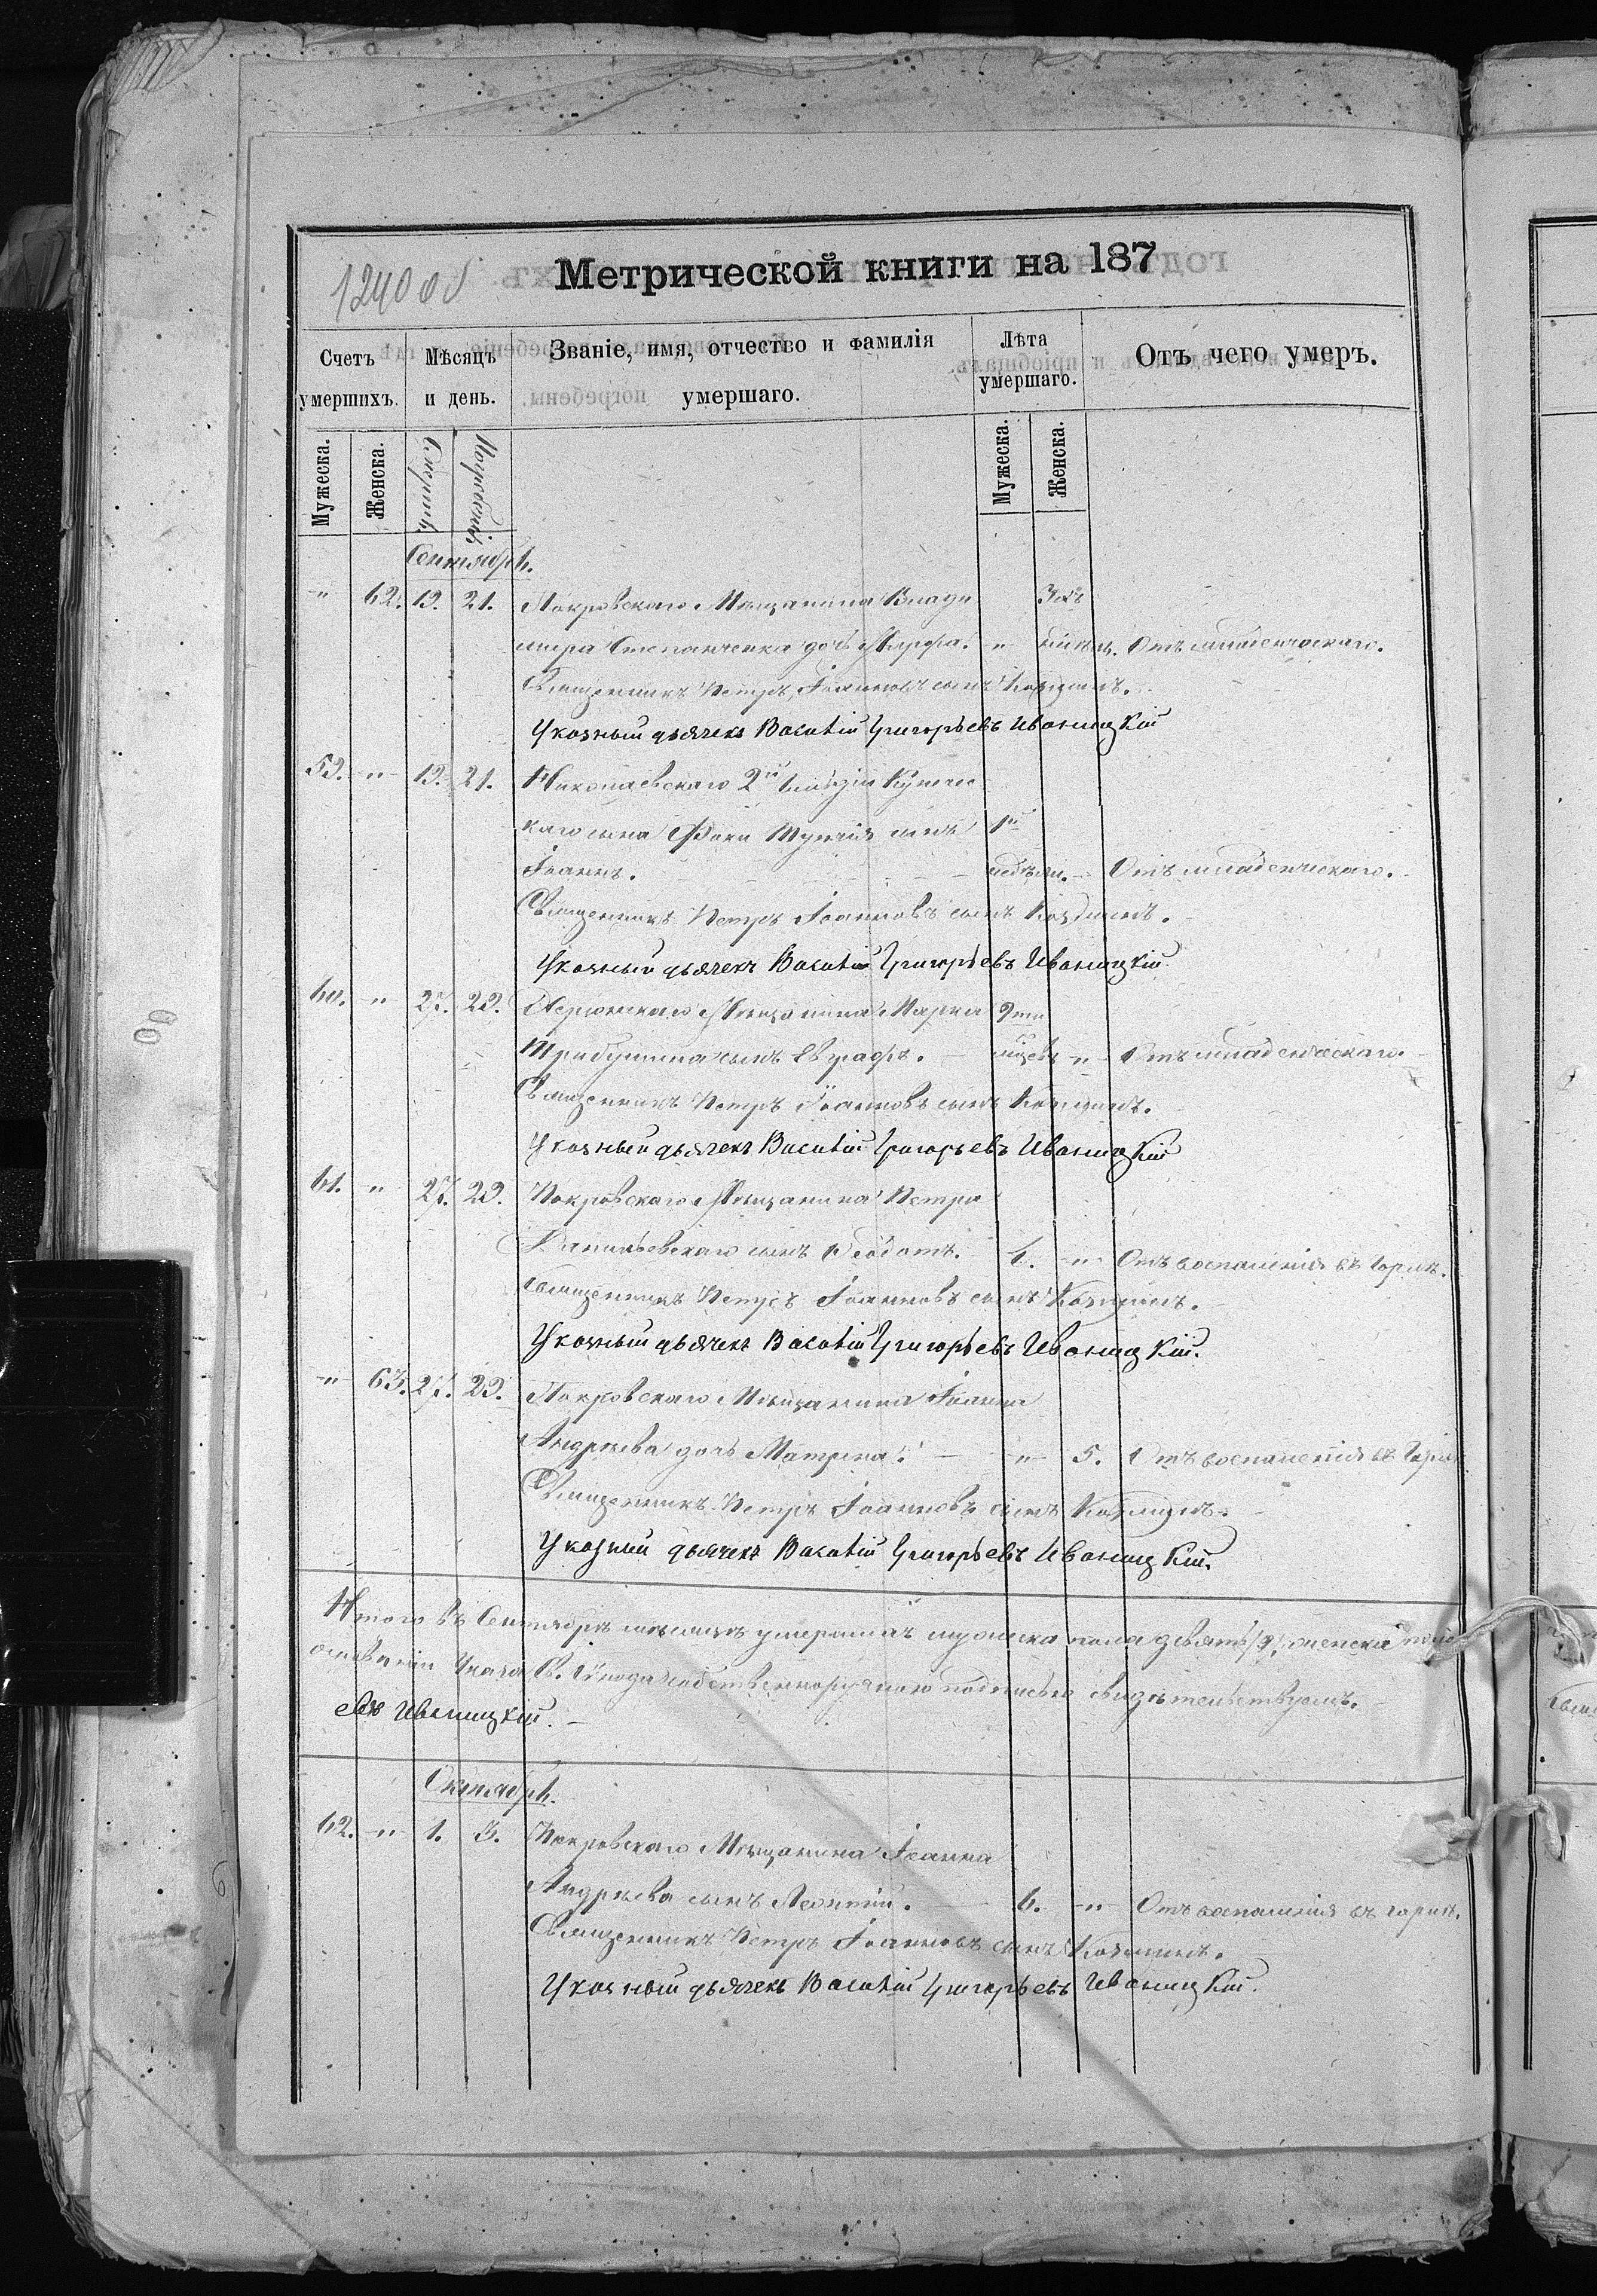 Метрической книги на 187
124об
Счетъ умершихъ.
Мѣсяцъ и день.
Званіе, имя, отчество и фамилія умершаго.
Лѣта умершаго.
Отъ чего умеръ.
Мужеска.
Женска.
Смерти.
Погребенія.
Мужеска.
Женска.
Сентябрь.
" 62. 19. 21. Покровскаго Мѣщанина Влади 3хъ
мира Степанченка дочь Марфа. " Отъ младенческаго.
Священникъ Петръ Іоанновъ сынъ
Указный дьячекъ Василій Григорьевъ Иваницкій
59. " 19. 21. Николаевскаго 2й Гильдіи Купечес
каго сына Фоки сынъ 1й
Іоаннъ. недѣли. Отъ младенческаго.
Священникъ Петръ Іоанновъ сынъ
Указный дьячекъ Василій Григорьевъ Иваницкій
60. " 27. 29. Мѣщанина Марка 9ти
сынъ Евграфъ. " Отъ младенческаго.
Священникъ Петръ Іоанновъ сынъ
Указный дьячекъ Василій Григорьевъ Иваницкій
61. " 27. 29. Покровскаго Мѣщанина Петра
сынъ Ѳеодотъ. " Отъ воспаленія въ горлѣ.
Священникъ Петръ Іоанновъ сынъ
Указный дьячекъ Василій Григорьевъ Иваницкій.
" 63. 27. 29. Покровскаго Мѣщанина Іоанна
Андреева дочь Матрена. " 5. Отъ воспаленія въ горлѣ
Священникъ Петръ Іоанновъ сынъ
Указный дьячекъ Василій Григорьевъ Иваницкій.
Итого въ Сентябрѣ мѣсяцѣ умершихъ мужеска пола девять /9/, женска пола
основаніи Указа Св. Сѵнода собственноручною подписью свидѣтельствуемъ.
евъ Иваницкій.
Октябрь.
62. " 1. 3. Покровскаго Мѣщанина Іоанна
Андреева сынъ Леонтій. 6. " Отъ воспаленія въ горлѣ.
Священникъ Петръ Іоанновъ сынъ
Указный дьячекъ Василій Григорьевъ Иваницкій.